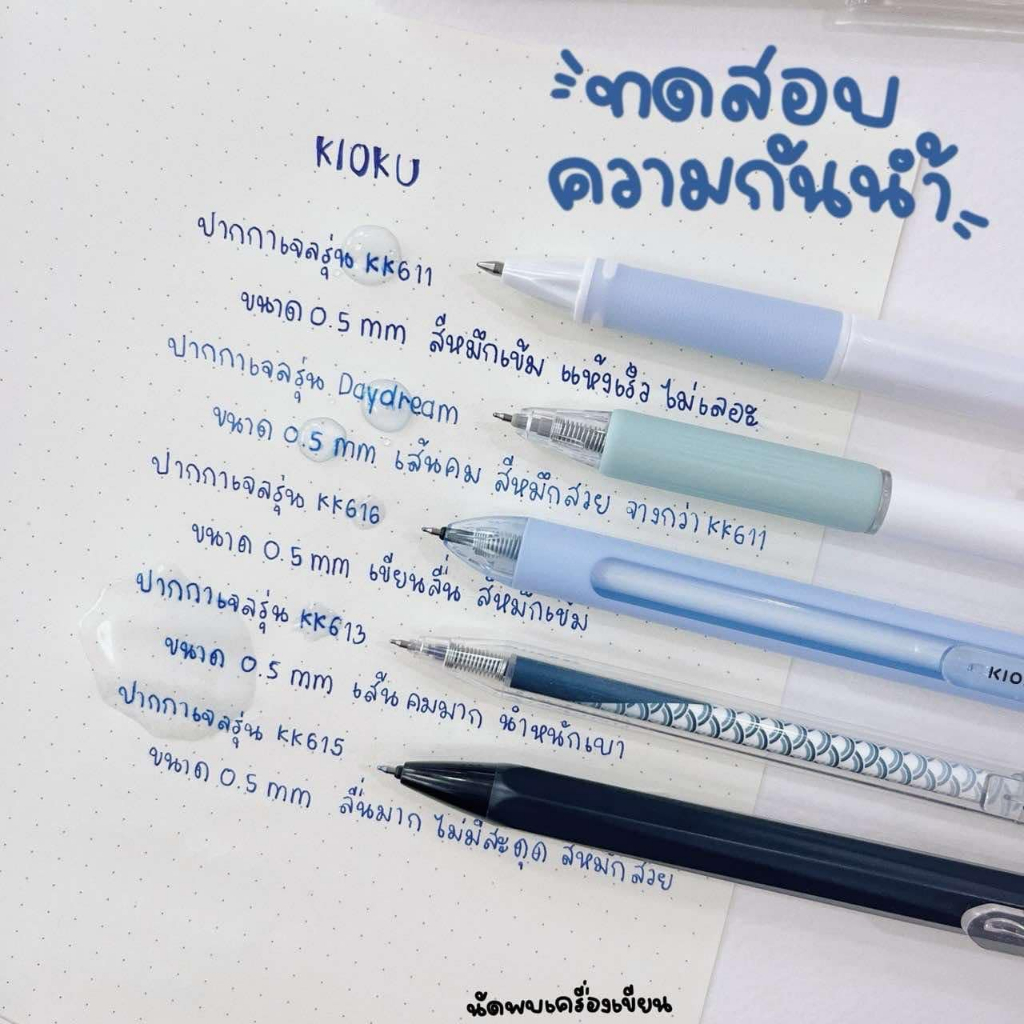 ทดสอบ
ความกันน้ำ
KIOKU
ปากกาเจลรุ่น KK611
ขนาด 0.5 mm สีหมึกเข้ม แห้งเร็ว ไม่เลอะ
ปากกาเจลรุ่น Daydream
ขนาด 0.5 mm เส้นคม สีหมึกสวย จางกว่า KK611
ปากกาเจลรุ่น KK616
ขนาด 0.5 mm เขียนลื่น สีหมึกเข้ม
ปากกาเจลรุ่น KK613
ขนาด 0.5 mm เส้นคมมาก น้ำหนักเบา
ปากกาเจลรุ่น KK615
ขนาด 0.5 mm ลื่นมาก ไม่มีสะดุด สีหมึกสวย
KIO
นัดพบเครื่องเขียน